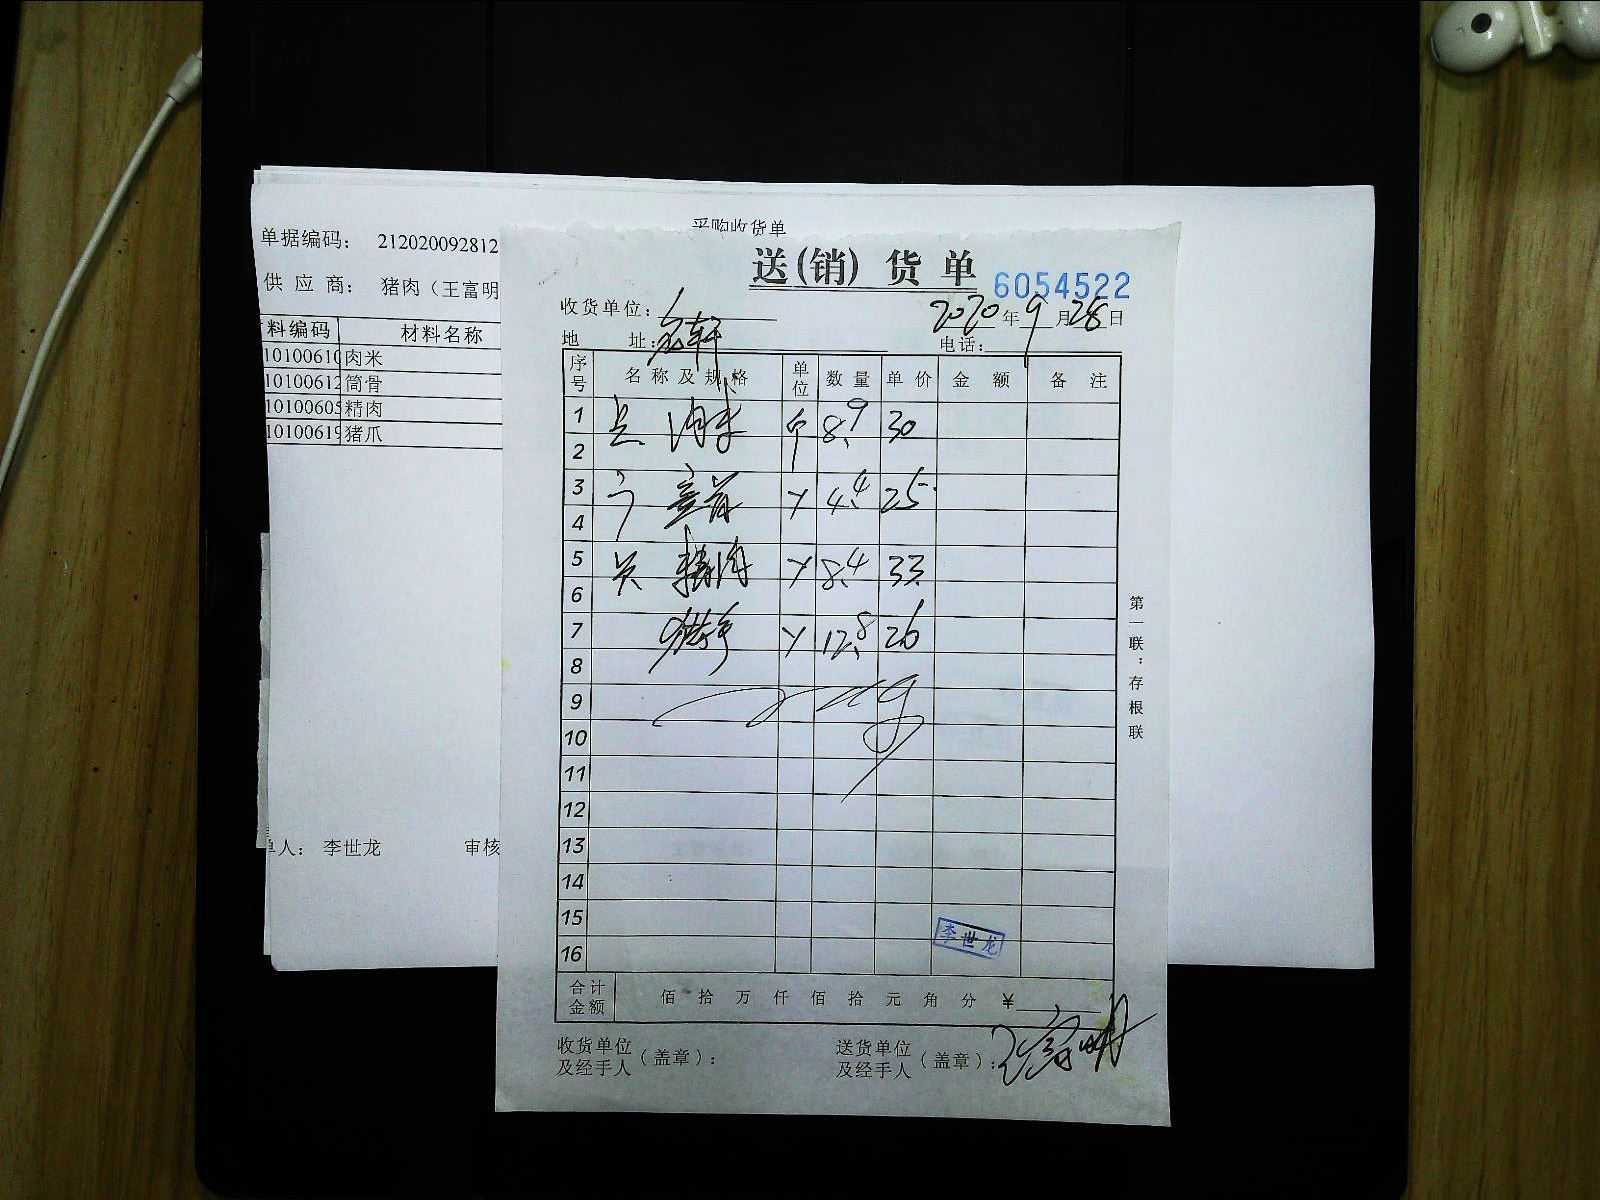 采购收货单
单据编码： 212020092812
供 应 商： 猪肉（王富明
料编码 材料名称
10100610 肉米
10100612 筒骨
10100605 精肉
10100619 猪爪
单人： 李世龙 审核
送(销) 货 单
6054522
收货单位：
2020 年 9 月 28 日
地 址： 宏轩 电话：
序号 名称及规格 单位 数量 单价 金额 备注
1 肉米 斤 8.9 30
2
3 筒骨 4.4 25
4
5 精肉 8.4 33
6
7 猪爪 12.8 26
8
9
10
11
12
13
14
15
16
李世龙
合计金额 佰 拾 万 仟 佰 拾 元 角 分 ¥
收货单位及经手人（盖章）： 送货单位及经手人（盖章）： 王富明
第一联：存根联